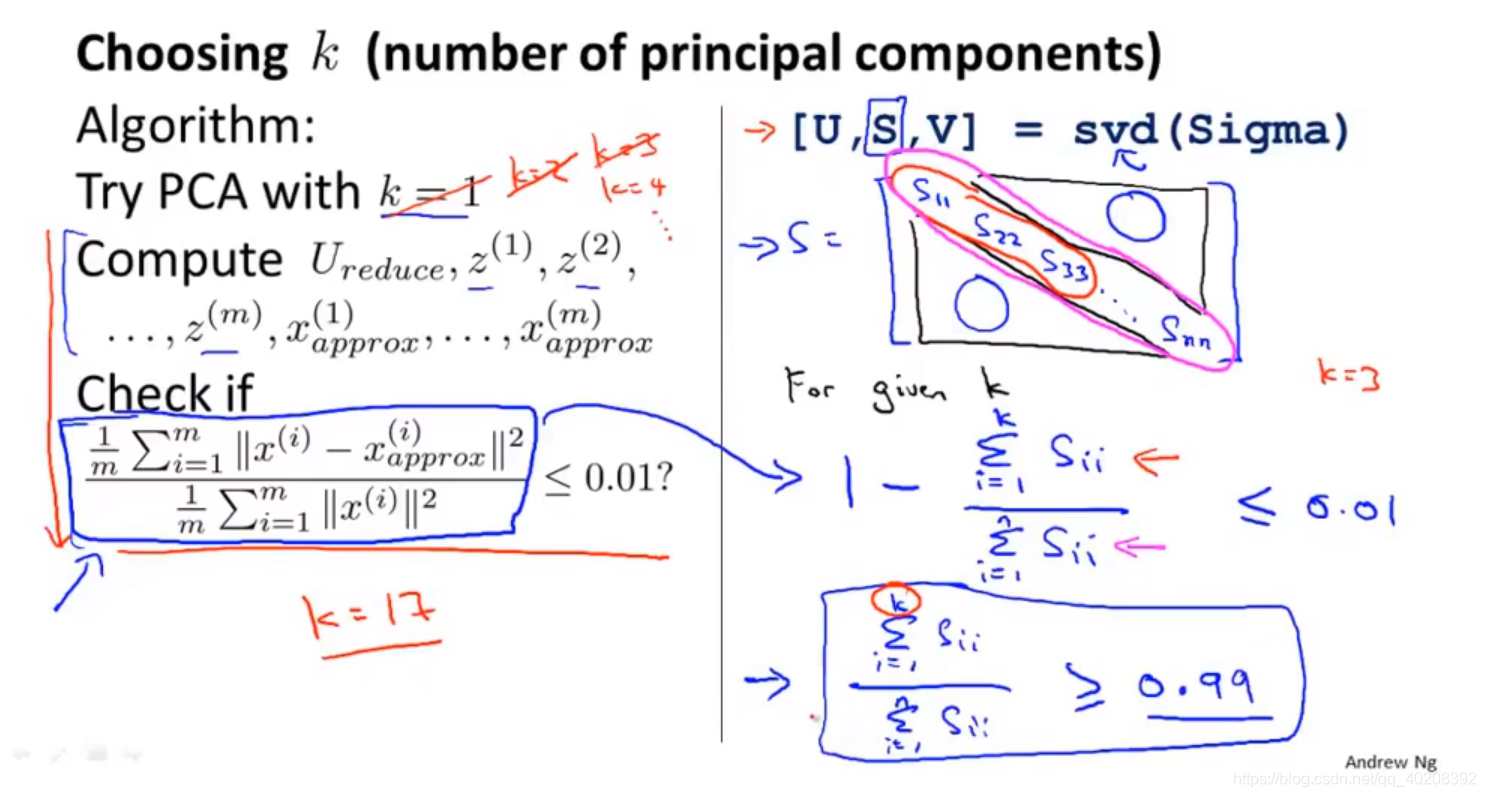 Choosing k (number of principal components)
Algorithm:
Try PCA with k = 1 k=2 k=3
k=4
⋮
Compute U_reduce, z^(1), z^(2),
..., z^(m), x_approx^(1), ..., x_approx^(m)
Check if
\frac{\frac{1}{m} ∑_{i=1}^{m} ‖x^(i) − x_approx^(i)‖^2}{\frac{1}{m} ∑_{i=1}^{m} ‖x^(i)‖^2} ≤ 0.01?
k = 17
→ [U,S,V] = svd(Sigma)
→ S =
S_11
S_22
S_33
...
S_nn
k=3
For given k
→ 1 - \frac{∑_{i=1}^{k} S_ii}{∑_{i=1}^{n} S_ii} ≤ 0.01
→ \frac{∑_{i=1}^{k} S_ii}{∑_{i=1}^{n} S_ii} ≥ 0.99
Andrew Ng
https://blog.csdn.net/qq_40208392